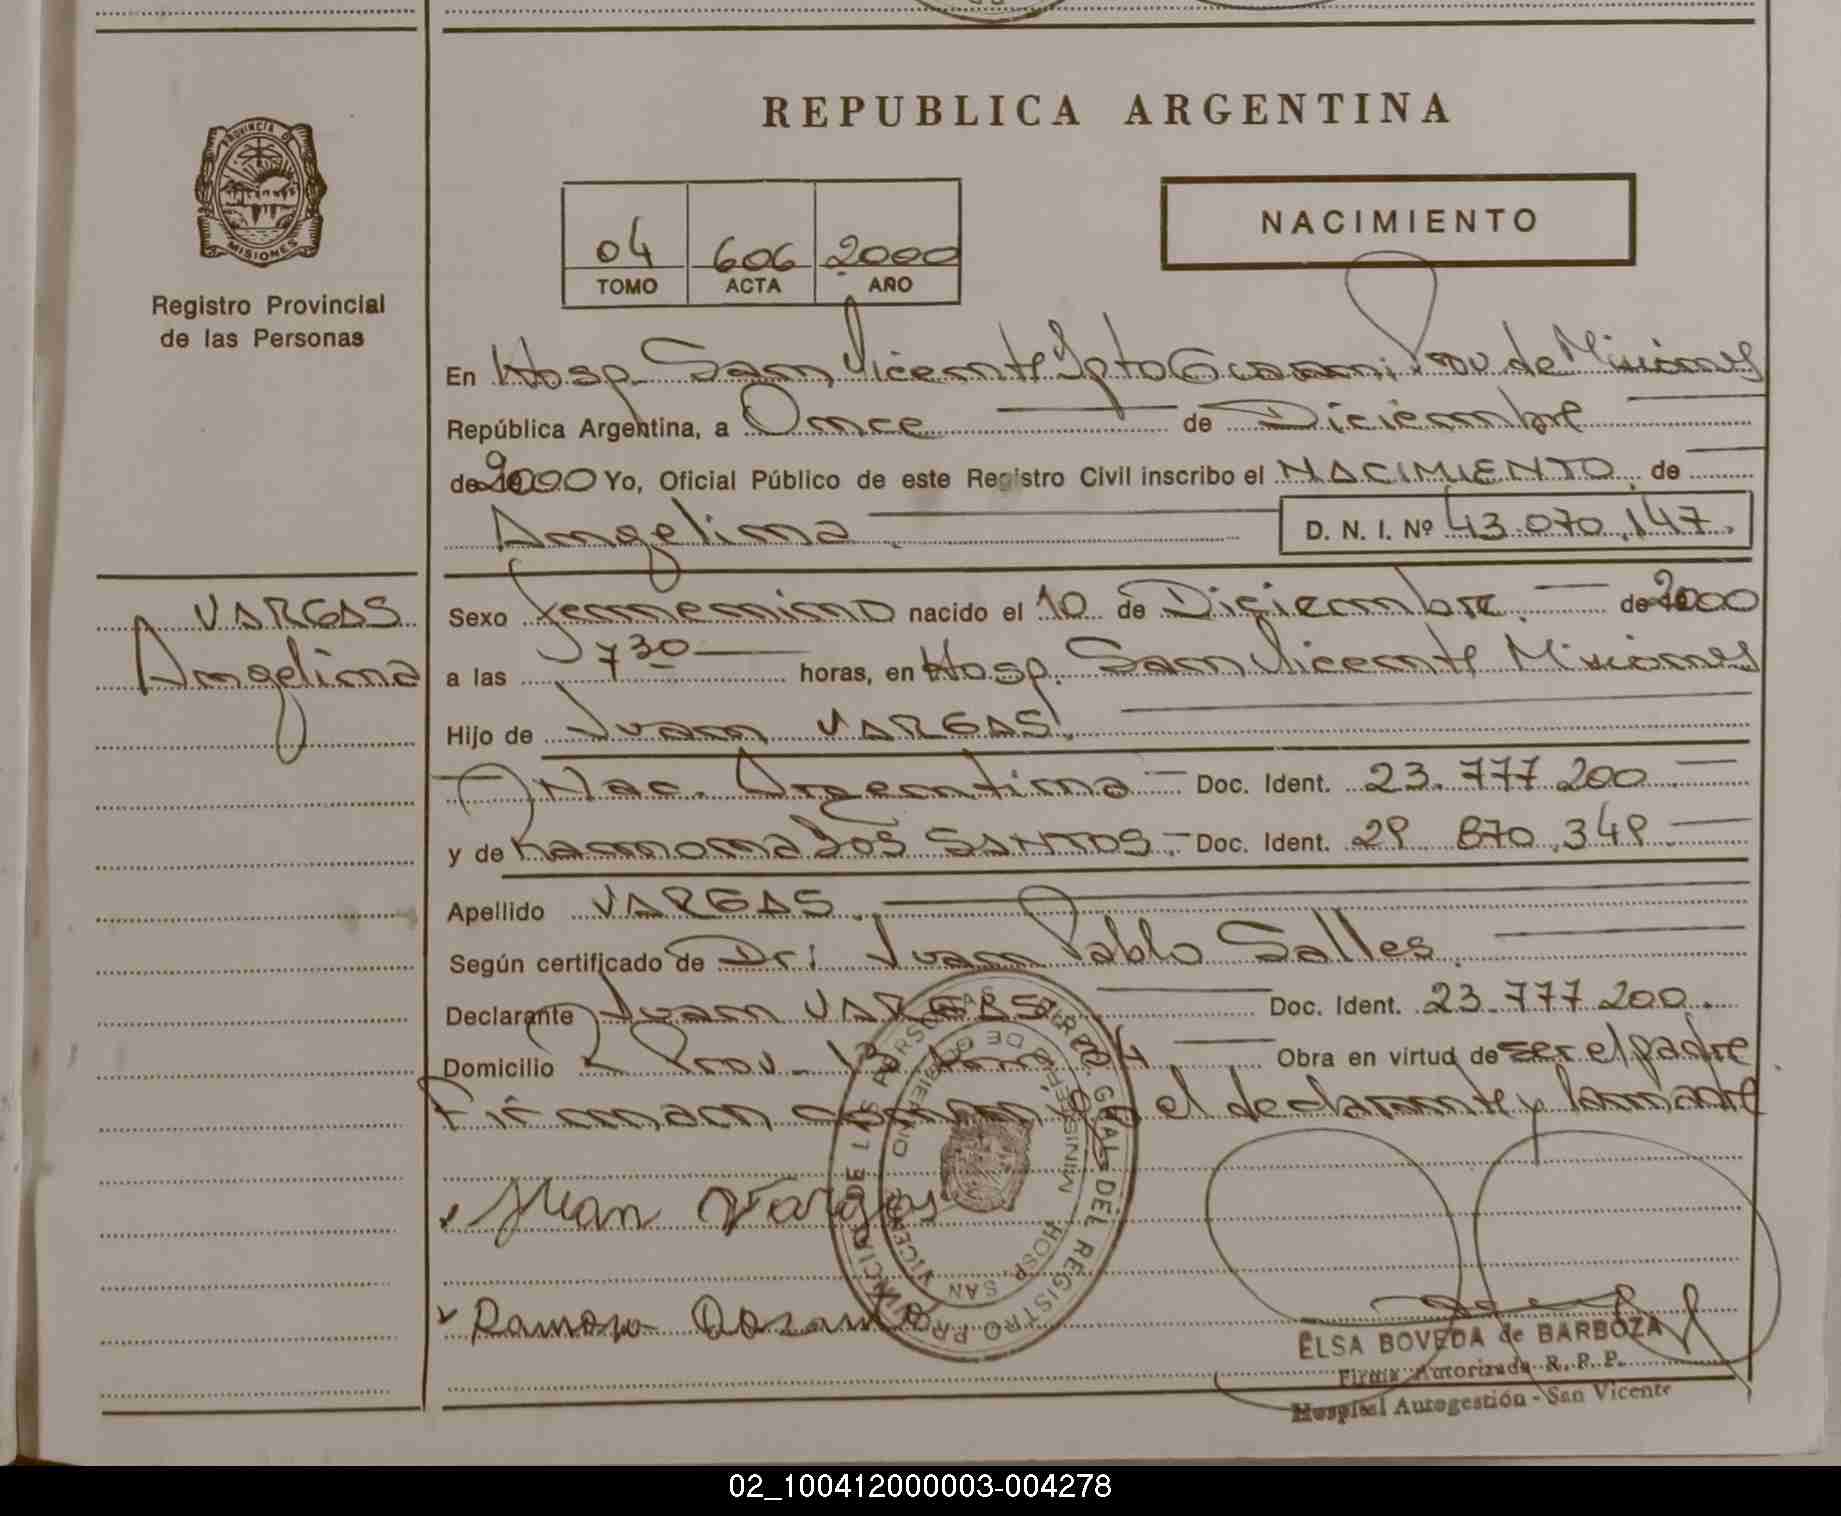 REPUBLICA ARGENTINA
PROVINCIA DE MISIONES
Registro Provincial
de las Personas
04 606 2000
TOMO ACTA AÑO
NACIMIENTO
En Hosp. San Vicente Dpto Guarani Prov de Misiones
República Argentina, a Once de Diciembre
de 2000 Yo, Oficial Público de este Registro Civil inscribo el NACIMIENTO de
Angelina D. N. I. Nº 43.070.147.
VARGAS
Angelina
Sexo femenino nacido el 10 de Diciembre de 2000
a las 7 30 horas, en Hosp. San Vicente Misiones
Hijo de Juan VARGAS.
Nac. Argentina Doc. Ident. 23.777.200
y de Ramona Dos SANTOS.- Doc. Ident. 29 870.349
Apellido VARGAS.
Según certificado de Dr: Juan Pablo Salles.
Declarante Juan VARGAS Doc. Ident. 23.777.200.
Domicilio R Prov. 13 Obra en virtud de ser el padre
Firman el declarante y la madre
Juan Vargas
Ramona
DIREC. GRAL. DEL REGISTRO PROVINCIAL DE LAS PERSONAS
MINISTERIO DE GOBIERNO
HOSP. SAN VICENTE
ELSA BOVEDA de BARBOZA
Firma Autorizada R. P. P.
Hospital Autogestión - San Vicente
02_100412000003-004278